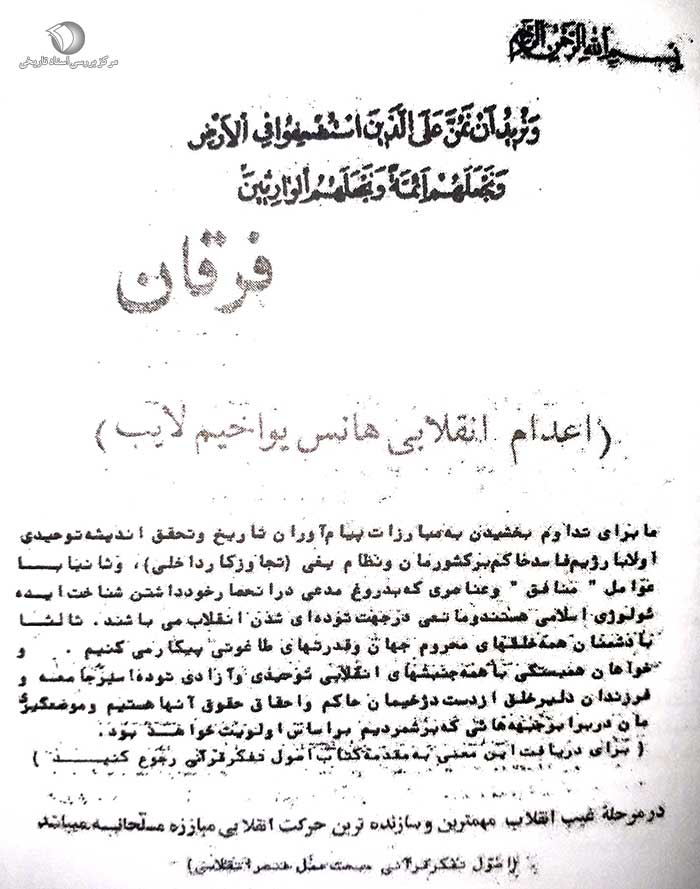 مرکز بررسی اسناد تاریخی
بسم الله الرحمن الرحیم
وَنُرِیدُ اَنْ نَمُنَّ عَلَی الَّذینَ اسْتُضْعِفُوا فِی الْاَرْضِ
وَنَجْعَلَهُمْ اَئِمَّةً وَنَجْعَلَهُمُ الْوارِثینَ
فرقان
(اعدام انقلابی هانس یواخیم لایب)
ما برای تداوم بخشیدن به مبارزات پیام‌آوران تاریخ و تحقق اندیشه توحیدی
اولا با رژیم فاسد حاکم بر کشورمان و نظام بغی (تجاوزکار داخلی)، و ثانیا با
عوامل " منافق " و عناصری که بدروغ مدعی در انحصار خود داشتن شناخت اید
ئولوژی اسلامی هستند و مانعی در جهت توده‌ای شدن انقلاب می باشند. ثالثا
با دشمنان همه خلقهای محروم جهان و قدرتهای طاغوتی پیکار می کنیم . و
خواهان همبستگی با همه جنبشهای انقلابی توحیدی و آزادی توده اسیر جامعه و
فرزندان دلیر خلق از دست دژخیمان حاکم و احقاق حقوق آنها هستیم و موضعگیری
مان در برابر جبهه هائی که برشمردیم بر اساس اولویت خواهد بود.
( برای دریافت این معنی به مقدمه کتاب اصول تفکر قرآنی رجوع کنید )
در مرحلهٔ غیب انقلاب مهمترین و سازنده ترین حرکت انقلابی مبارزه مسلحانه میباشد
(اصول تفکر قرآنی مبحث عمل عنصر انقلابی)